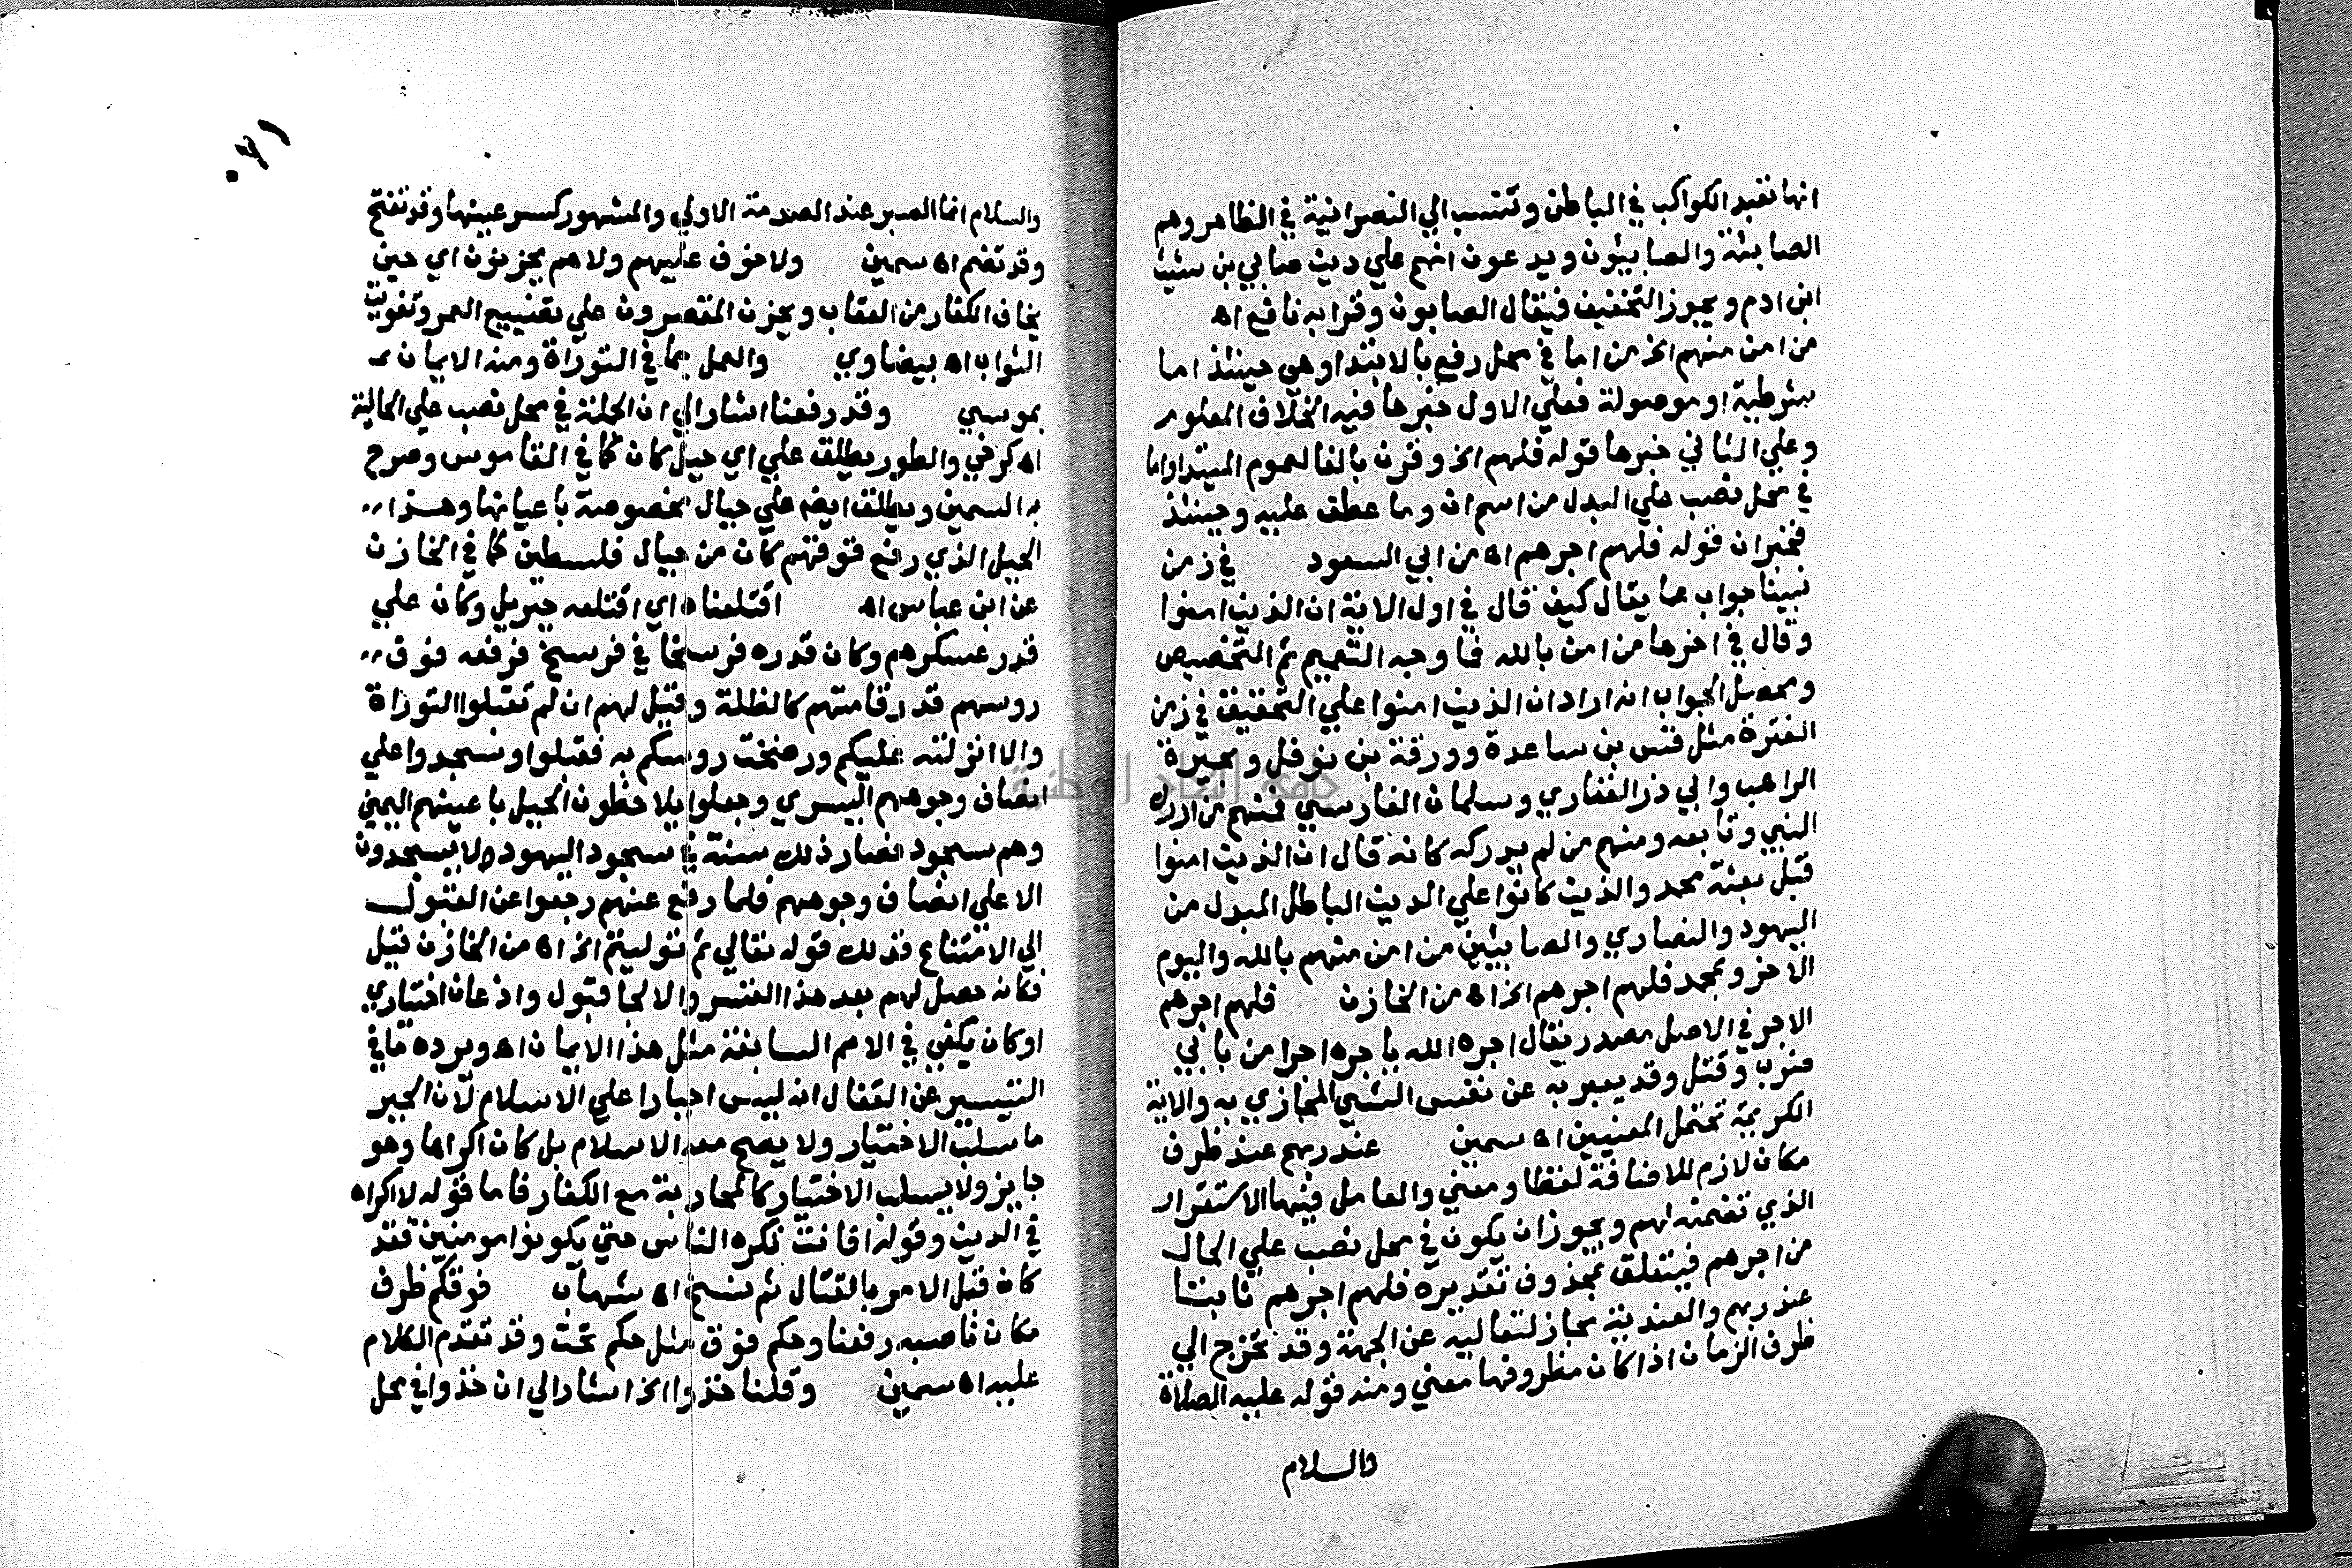 انها تعبد الكواكب في الباطن وتنتسب الي النصرانية في الظاهر وهم
الصابئة والصابيئون ويدعون انهم علي دين صابي بن شيث
ابن ادم ويجوز التخفيف فيقال الصابون وقرا به نافع اه
من امن منهم الخ من اما في محل رفع بالابتدا وهي حينئذ اما
شرطية او موصولة فعلي الاول خبرها فيه الخلاف المعلوم
وعلي الثاني خبرها قوله فلهم الخ وقرن بالفا لعموم المبتدا واما
في محل نصب علي البدل من اسم ان وما عطف عليه وحينئذ
فخبر ان قوله فلهم اجرهم اه من ابي السعود في زمن
نبينا جواب عما يقال كيف قال في اول الاية ان الذين امنوا
وقال في اخرها من امن بالله فما وجه التعميم ثم التخصيص
ومحصل الجواب انه اراد ان الذين امنوا علي التحقيق في زمن
الفترة مثل قس بن ساعدة وورقة بن نوفل وبحيرة
الراهب وابي ذر الغفاري وسلمان الفارسي فمنهم من ادرك
النبي وتابعه ومنهم من لم يدركه كانه قال ان الذين امنوا
قبل بعثة محمد والذين كانوا علي الدين الباطل المبدل من
اليهود والنصاري والصابيئين من امن منهم بالله واليوم
الاخر وبمحمد فلهم اجرهم الخ اه من الخازن فلهم اجرهم
الاجر في الاصل مصدر يقال اجره الله ياجره اجرا من بابي
ضرب وقتل وقد يعبر به عن نفس الشي المجازي به والاية
الكريمة تحتمل المعنيين اه سمين عند ربهم عند ظرف
مكان لازم للاضافة لفظا ومعني والعامل فيها الاستقرار
الذي تضمنه لهم ويجوز ان يكون في محل نصب علي الحال
من اجرهم فيتعلق بمحذوف تقديره فلهم اجرهم ثابتا
عند ربهم والعندية مجاز لتعاليه عن الجهة وقد تخرج الي
ظرف الزمان اذا كان مظروفها معني ومنه قوله عليه الصلاة
والسلام
والسلام انما الصبر عند الصدمة الاولي والمشهور كسر عينها وقد تفتح
وقد تضم اه سمين ولا خوف عليهم ولا هم يحزنون اي حين
يخاف الكفار من العقاب ويحزن المقصرون علي تضييع العمر وتفويت
الثواب اه بيضاوي والعمل بما في التوراة ومنه الايمان
بموسي وقد رفعنا اشار الي ان الجملة في محل نصب علي الحالية
اه كرخي والطور يطلق علي اي جبل كان كما في القاموس وصرح
به السمين ويطلق ايضا علي جبال مخصوصة باعيانها وهذا
الجبل الذي رفع فوقهم كان من جبال فلسطين كما في الخازن
عن ابن عباس اه اقتلعناه اي اقتلعه جبريل وكان علي
قدر عسكرهم وكان قدره فرسخا في فرسخ فرفعه فوق
روسهم قدر قامتهم كالظلة وقيل لهم ان لم تقبلوا التوراة
والا انزلته عليكم ورضخت روسكم به فقبلوا وسجدوا علي
انصاف وجوههم اليسري وجعلوا يلاحظون الجبل باعينهم اليمين
وهم سجود فصار ذلك سنة في سجود اليهود لا يسجدون
الا علي انصاف وجوههم فلما رفع عنهم رجعوا عن القبول
الي الامتناع فذلك قوله تعالي ثم توليتم الخ اه من الخازن قيل
فكانه حصل لهم بعد هذا القسر والالجا قبول واذعان اختياري
او كان يكفي في الامم السابقة مثل هذا الايمان اه ويرده ما في
التيسير عن القفال انه ليس اجبارا علي الاسلام لان الجبر
ما سلب الاختيار ولا يصح معه الاسلام بل كان اكراها وهو
جايز ولا يسلب الاختيار كالمحاربة مع الكفار فاما قوله لا اكراه
في الدين وقوله افانت تكره الناس حتي يكونوا مومنين فقد
كان قبل الامر بالقتال ثم نسخ اه شهاب فوقكم ظرف
مكان ناصبه رفعنا وحكم فوق مثل حكم تحت وقد تقدم الكلام
عليه اه سمين وقلنا خذوا الخ اشار الي ان خذوا في محل
جامعة النجاح الوطنية